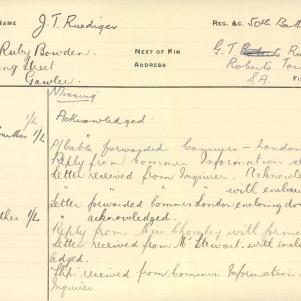 NAME J. T. Ruediger REG. &C. 50th Batt
Ruby Bowden. NEXT OF KIN G. T. Ru
ng Street ADDRESS Roberts Tow
Gawler. S.A. FI
Missing
1/L Acknowledged.
1/L "
P/Cable forwarded Commrs - London
Reply from Common Information s
Letter received from Inquirer. Acknowle
" " " with enclow
Letter forwarded Commrs London enclosing do
" acknowledged.
1/L Reply from Miss Chomley with forma
Letter received from Mr Stewart. with encl
edged.
received from Common Information
Inquirer